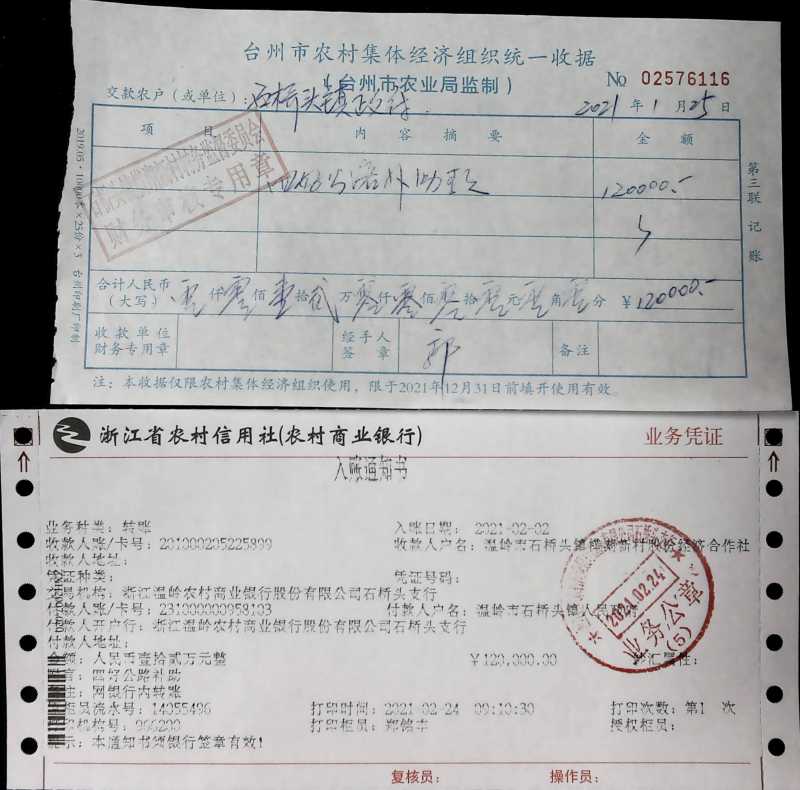 台州市农村集体经济组织统一收据
(台州市农业局监制)
No 02576116
交款农户(或单位):石桥头镇政府
2021年1月25日
项目 内容摘要 金额
四好公路补助款 120000.-
合计人民币(大写) 零仟零佰壹拾贰万零仟零佰零拾零元零角零分 ¥120000.-
收款单位财务专用章
经手人签章 郭
备注
注:本收据仅限农村集体经济组织使用,限于2021年12月31日前填开使用有效。
第三联 记账
财务审核专用章
浙江省农村信用社(农村商业银行)
业务凭证
入账通知书
业务种类:转账 入账日期: 2021-02-02
收款人账/卡号:201000205225899 收款人户名:温岭市石桥头镇 新村股份经济合作社
收款人地址:
凭证种类: 凭证号码:
交易机构:浙江温岭农村商业银行股份有限公司石桥头支行
付款人账/卡号:231000000958103 付款人户名:温岭市石桥头镇人民政府
付款人开户行:浙江温岭农村商业银行股份有限公司石桥头支行
付款人地址:
金额:人民币壹拾贰万元整 ¥120,000.00 钞汇属性:
附言:四好公路补助
备注:网银行内转账
柜员流水号:14055486 打印时间:2021-02-24 09:10:30 打印次数:第1 次
打印机构号:966200 打印柜员: 授权柜员:
提示:本通知书须银行签章有效!
2021.02.24
业务公章
(5)
复核员: 操作员: